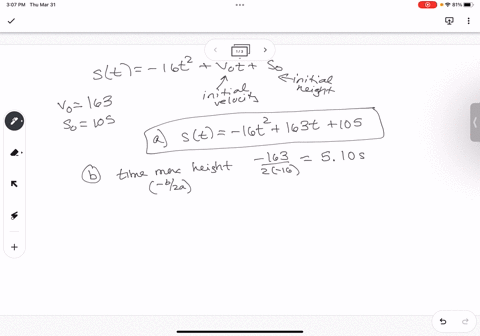 3:07 PM Thu Mar 31
81%
1/2
s(t) = -16t² + V₀t + S₀
initial velocity
initial height
V₀ = 163
S₀ = 105
a) s(t) = -16t² + 163t + 105
b) time max height -163/2(-16) = 5.10s
(-b/2a)